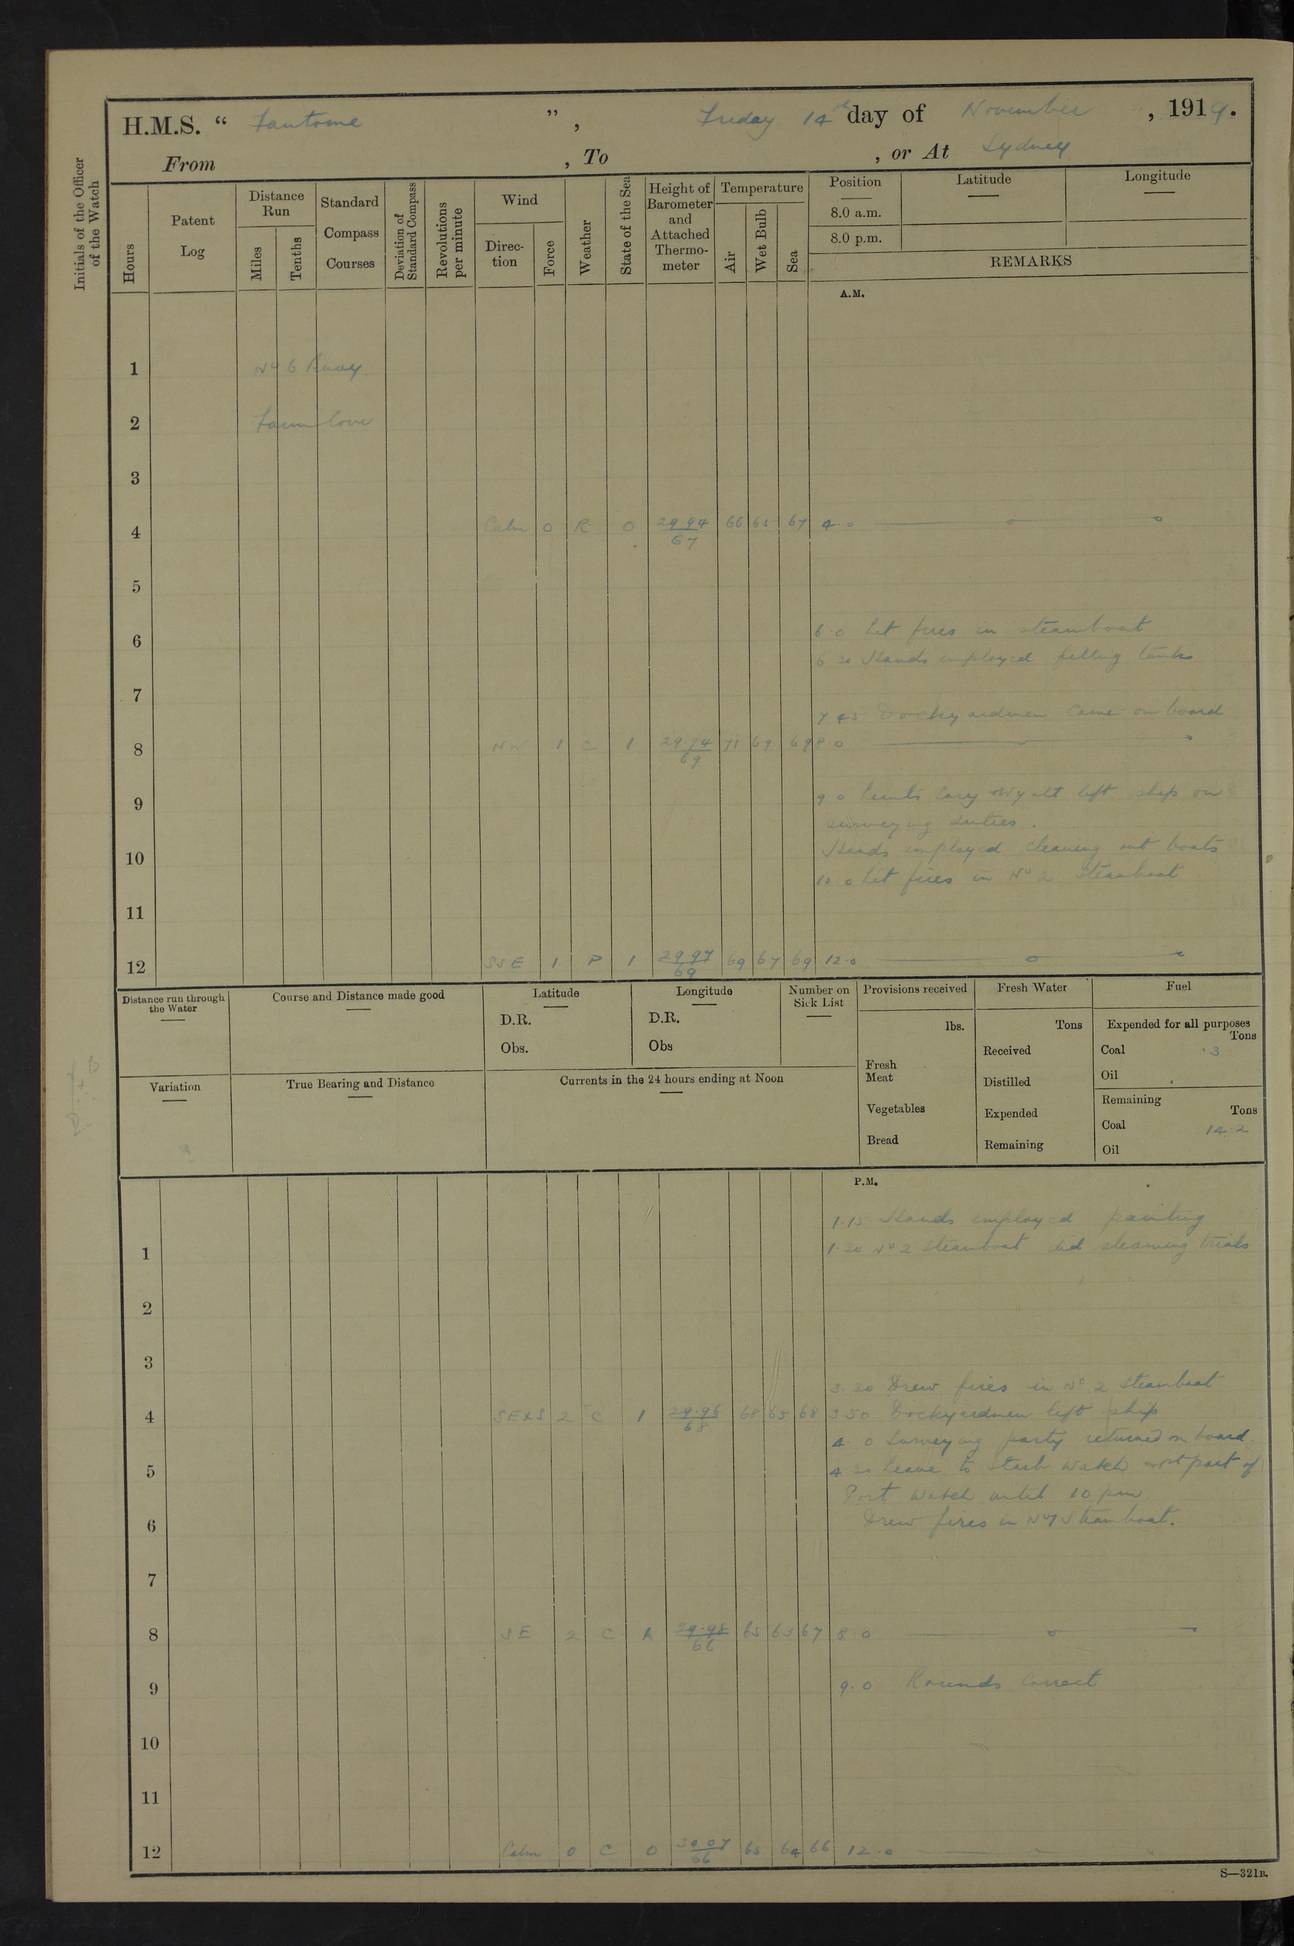 H.M.S. “ Fantome ”, Friday 14th day of November, 1919.
From , To , or At Sydney
Initials of the Officer of the Watch
Hours
Patent Log
Distance Run
Miles
Tenths
Standard Compass Courses
Deviation of Standard Compass
Revolutions per minute
Wind
Direc-tion
Force
Weather
State of the Sea
Height of Barometer and Attached Thermo-meter
Temperature
Air
Wet Bulb
Sea
Position
8.0 a.m.
8.0 p.m.
Latitude
Longitude
REMARKS
A.M.
1 No 6 Buoy
2 Farm Cove
3
4 Calm 0 R 0 29.94/67 66 65 67 4.0
5
6 6.0 Lit fires in steamboat
6.30 Hands employed filling tanks
7
7.45 Dockyardmen came on board
8 NW 1 C 1 29.94/69 71 69 69 8.0
9 9.0 Lieuts Cary & Wyatt left ship on
surveying duties.
10 Hands employed cleaning out boats
10.0 Lit fires in No 2 Steamboat
11
12 SSE 1 P 1 29.97/69 69 67 69 12.0
Distance run through the Water
Course and Distance made good
Latitude
D.R.
Obs.
Longitude
D.R.
Obs
Number on Sick List
Provisions received
lbs.
Fresh Meat
Vegetables
Bread
Fresh Water
Tons
Received
Distilled
Expended
Remaining
Fuel
Expended for all purposes
Tons
Coal .3
Oil
Remaining
Tons
Coal 14.2
Oil
Variation
True Bearing and Distance
Currents in the 24 hours ending at Noon
P.M.
1.15 Hands employed painting
1 1.30 No 2 Steamboat did steaming trials
2
3
3.30 Drew fires in No 2 Steamboat
4 SExS 2 C 1 29.96/68 68 65 68 3.50 Dockyardmen left ship
4.0 Surveying party returned on board.
5 4.30 Leave to Starb Watch & part of
Port Watch until 10 pm
6 Drew fires in No 1 Steamboat.
7
8 SE 2 C 29.98/66 65 63 67 8.0
9 9.0 Rounds Correct
10
11
12 Calm 0 C 0 30.07/66 65 64 66 12.0
S—321B.